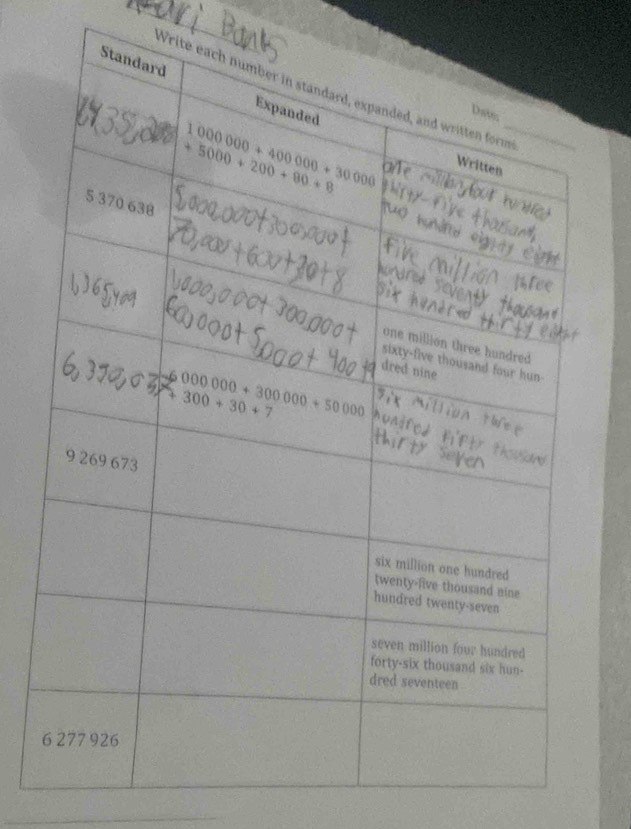 Banks
Date:
Write each number in standard, expanded, and written forms.
Standard
Expanded
Written
1 000 000 + 400 000 + 30 000
+ 5000 + 200 + 80 + 8
one million four hundred
thirty-five thousand,
two hundred eighty eight
5 370 638
5,000,000+300,000+
70,000+600+30+8
five million three
hundred seventy thousand
six hundred thirty eight
1,365,409
1,000,000+ 300,000+
60,000+ 5,000+ 400+9
one million three hundred
sixty-five thousand four hun-
dred nine
6,350,037
6 000 000 + 300 000 + 50 000
+ 300 + 30 + 7
six million three
hundred fifty thousand
thirty seven
9 269 673
six million one hundred
twenty-five thousand nine
hundred twenty-seven
seven million four hundred
forty-six thousand six hun-
dred seventeen
6 277 926